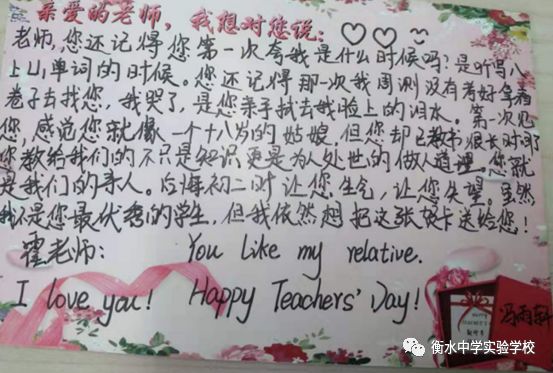 亲爱的老师，我想对您说：
老师，您还记得您第一次夸我是什么时候吗？是听写八
上U1单词的时候。您还记得那一次我周测没有考好拿着
卷子去找您，我哭了，是您亲手拭去我脸上的泪水。第一次见
您，感觉您就像一个十八岁的姑娘，但您却已教书很长时间了
您教给我们的不只是知识更是为人处世的做人道理。您就
是我们的亲人。后悔初二时让您生气，让您失望。虽然
我不是您最优秀的学生，但我依然想把这张贺卡送给您！
霍老师： You like my relative.
I love you! Happy Teachers' Day!
冯雨轩
衡水中学实验学校